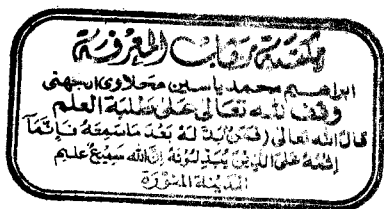 مكتبة رحاب المعرفة
ابراهيم محمد ياسين محلاوي الجهني
وقف لله تعالى على طلبة العلم
قال الله تعالى (فمن بدله بعد ما سمعه فإنما
إثمه على الذين يبدلونه إن الله سميع عليم
المدينة المنورة